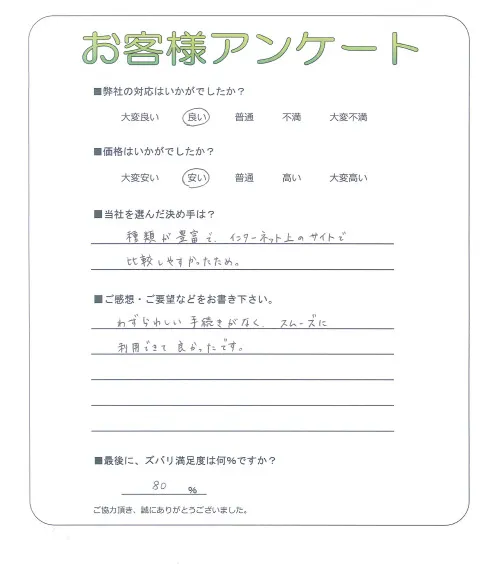 お客様アンケート
■弊社の対応はいかがでしたか？
大変良い 良い 普通 不満 大変不満
■価格はいかがでしたか？
大変安い 安い 普通 高い 大変高い
■当社を選んだ決め手は？
種類が豊富で、インターネット上のサイトで
比較しやすかったため。
■ご感想・ご要望などをお書き下さい。
わずらわしい手続きがなく、スムーズに
利用できて良かったです。
■最後に、ズバリ満足度は何%ですか？
80 %
ご協力頂き、誠にありがとうございました。